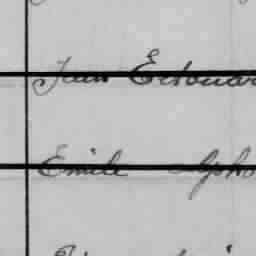 Jean Edouar
Emile Alpho